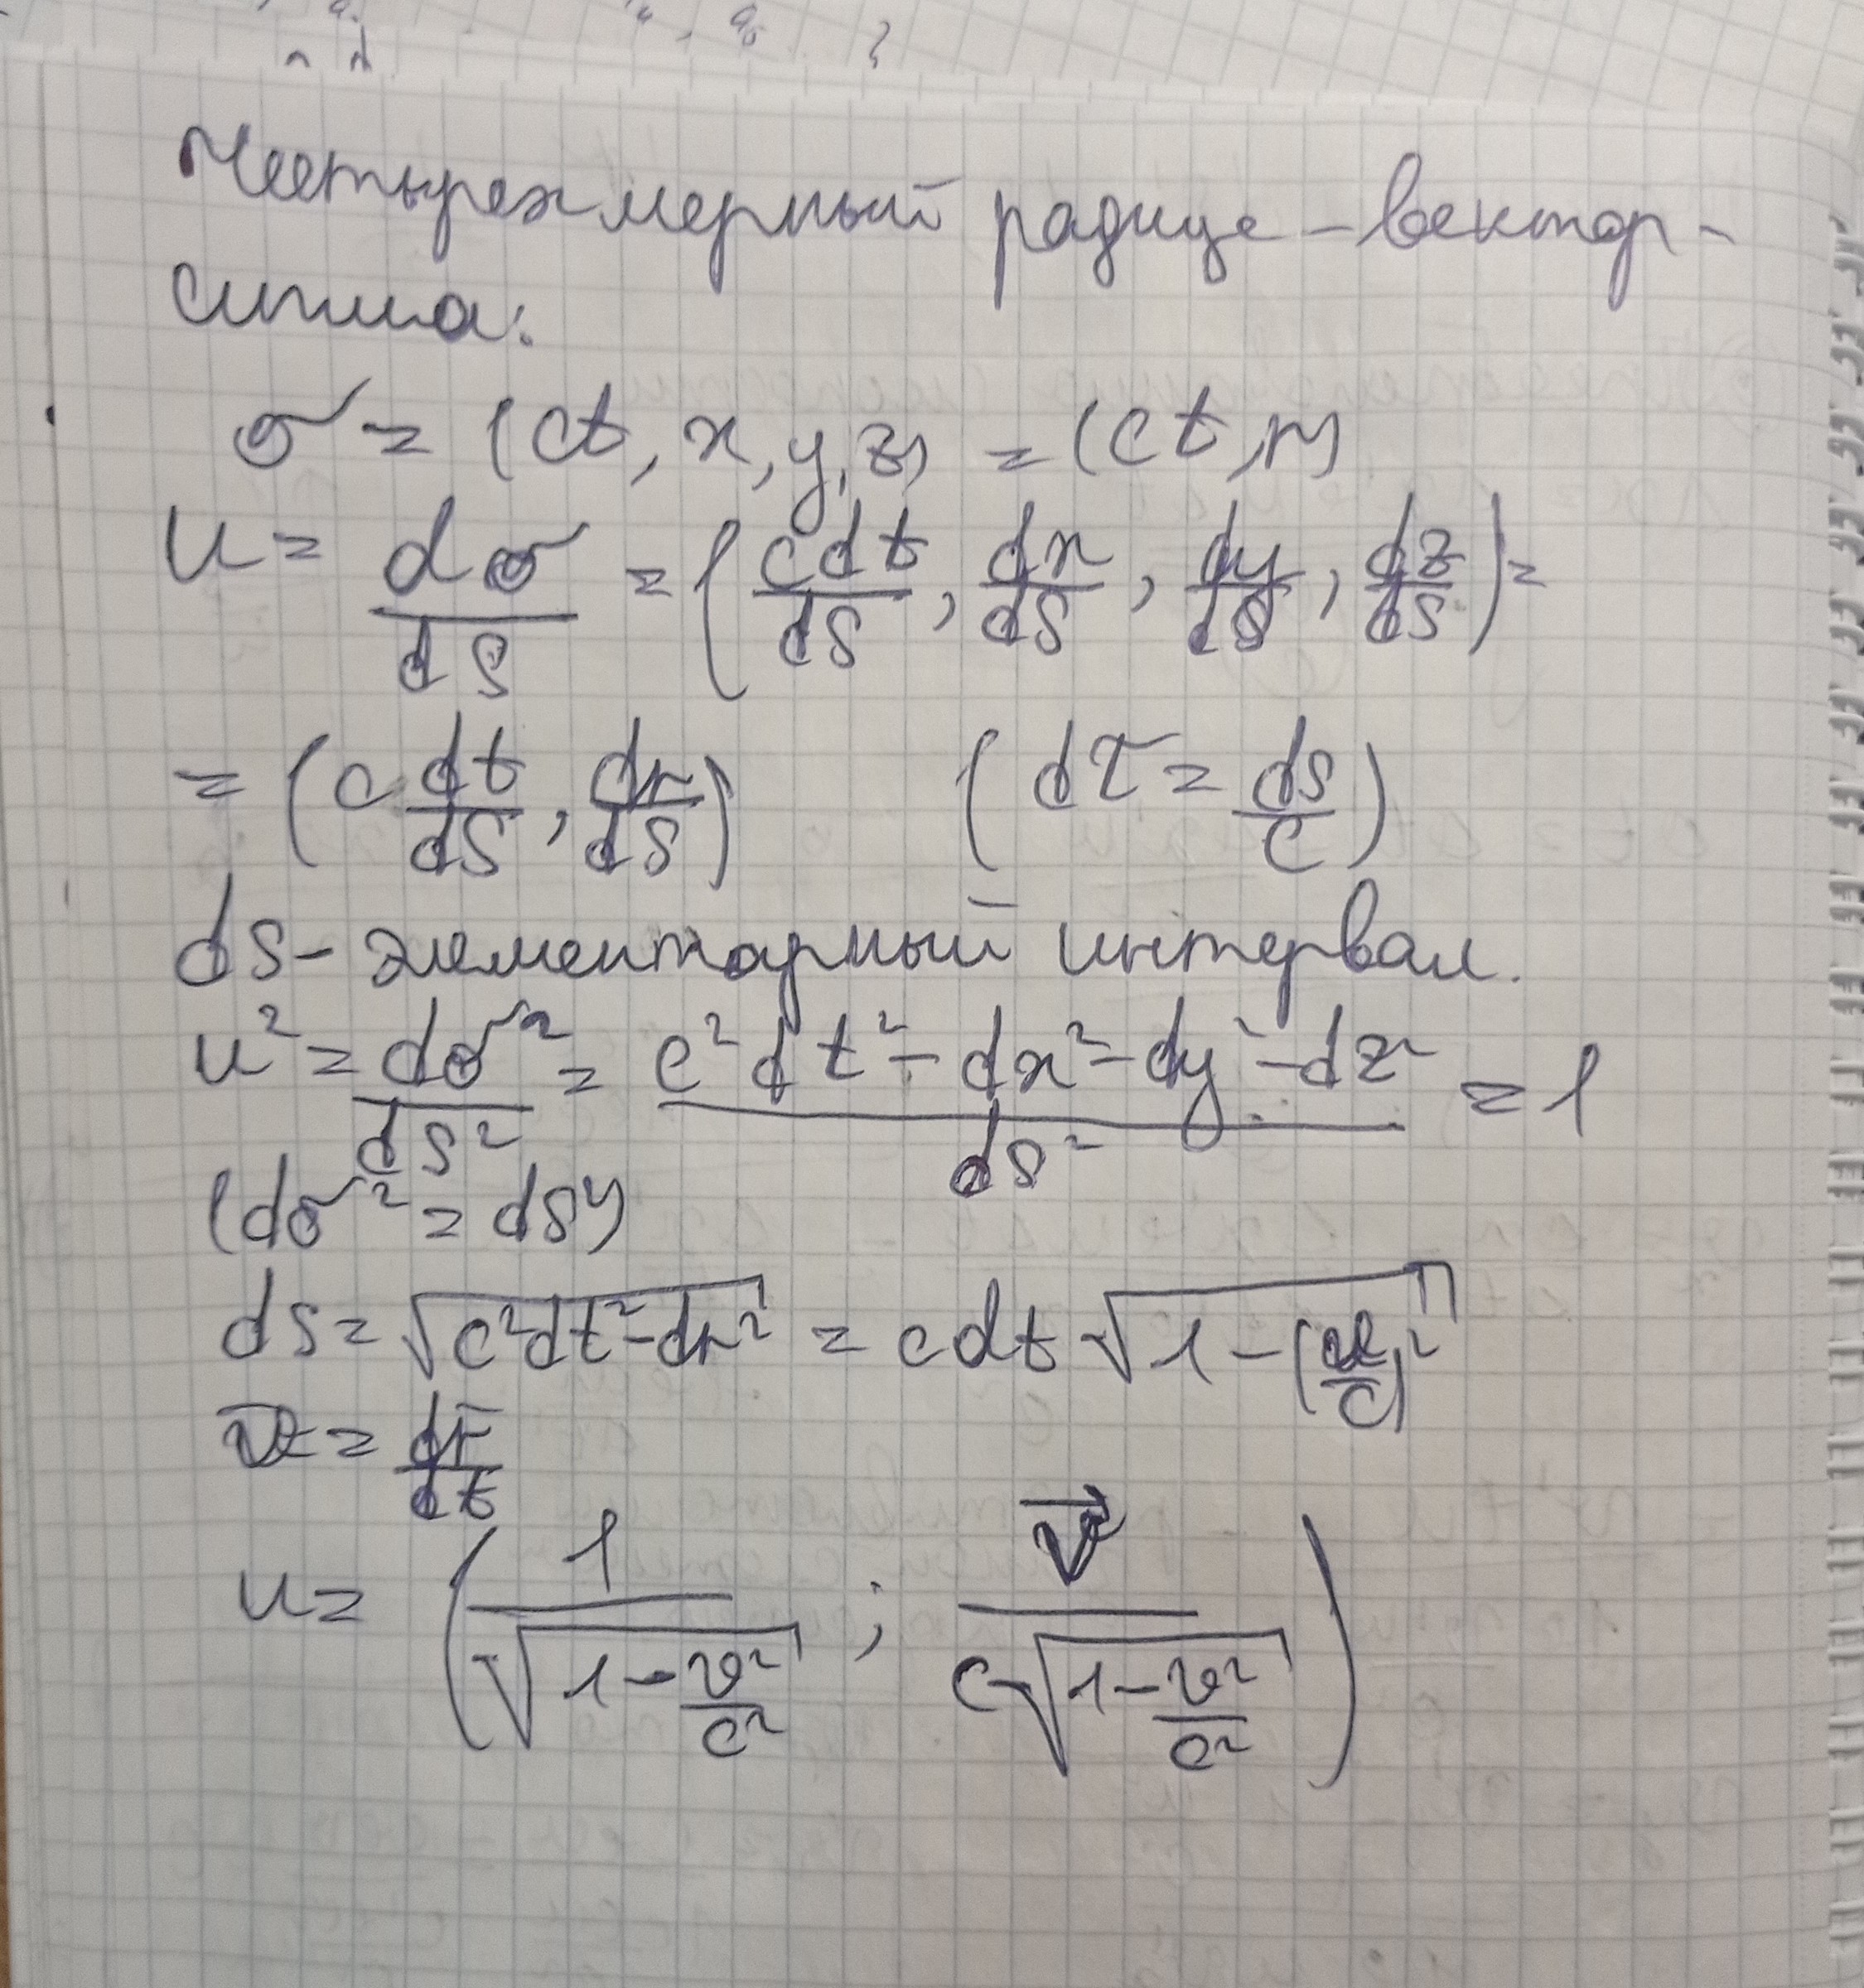 Четырехмерный радиус-вектор-
сигма:
σ = (ct, x, y, z) = (ct, r)
u = dσ/ds = (cdt/ds, dx/ds, dy/ds, dz/ds) =
= (c dt/ds, dr/ds) (dτ = ds/c)
ds - элементарный интервал.
u² = dσ²/ds² = (c²dt² - dx² - dy² - dz²)/ds² = 1
(dσ² = ds²)
ds = √(c²dt² - dr²) = cdt √(1 - (v/c)²)
v̄ = dr̄/dt
u = (1/√(1 - v²/c²) ; v⃗/(c√(1 - v²/c²)))